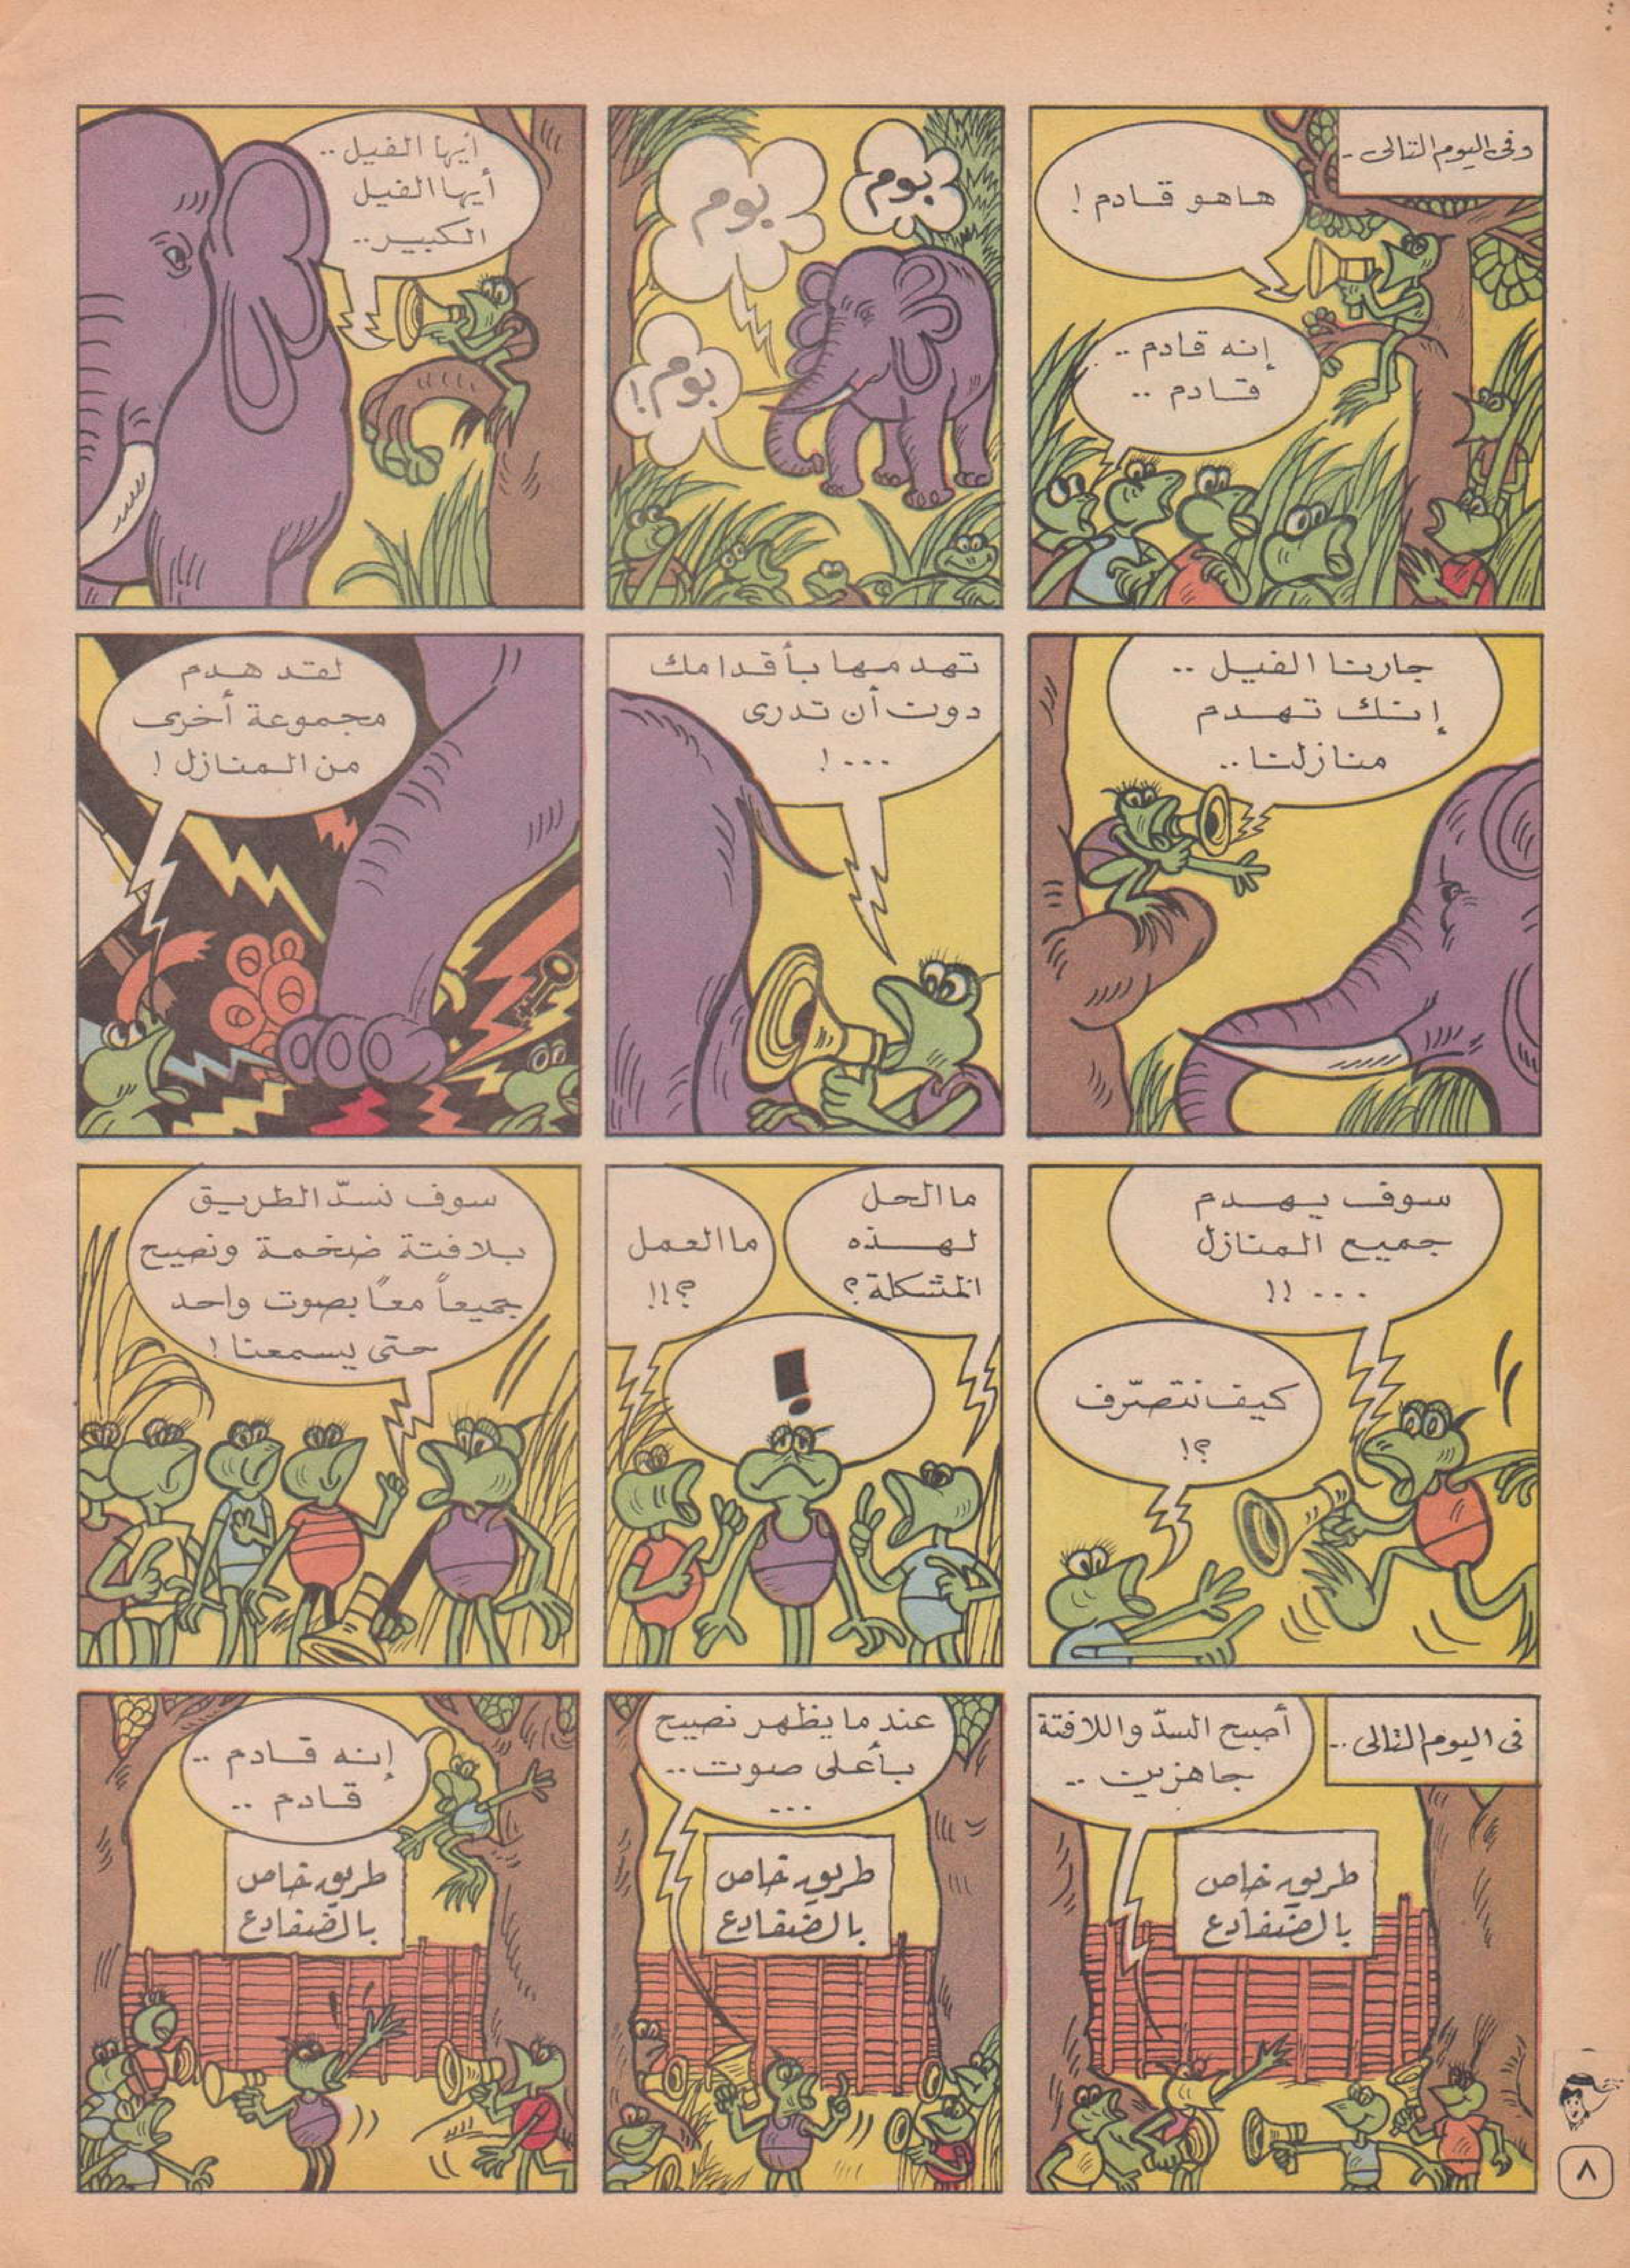 وفى اليوم التالى ..
هاهو قادم !
إنه قادم ..
قادم ..
بوم
بوم
بوم !
أيها الفيل ..
أيها الفيل
الكبير ..
جارنا الفيل ..
إنك تهدم
منازلنا ..
تهدمها بأقدامك
دون أن تدرى
... !
لقد هدم
مجموعة أخرى
من المنازل !
سوف يهدم
جميع المنازل
... !!
كيف نتصرّف
؟!
ما الحل
لهذه
المشكلة ؟
ما العمل
؟!!
!
سوف نسدّ الطريق
بلافتة ضخمة ونصيح
جميعاً معاً بصوت واحد
حتى يسمعنا !
فى اليوم التالى ..
أصبح السدّ واللافتة
جاهزين ..
طريق خاص
بالضفادع
عندما يظهر نصيح
بأعلى صوت ..
...
طريق خاص
بالضفادع
إنه قادم ..
قادم ..
طريق خاص
بالضفادع
٨